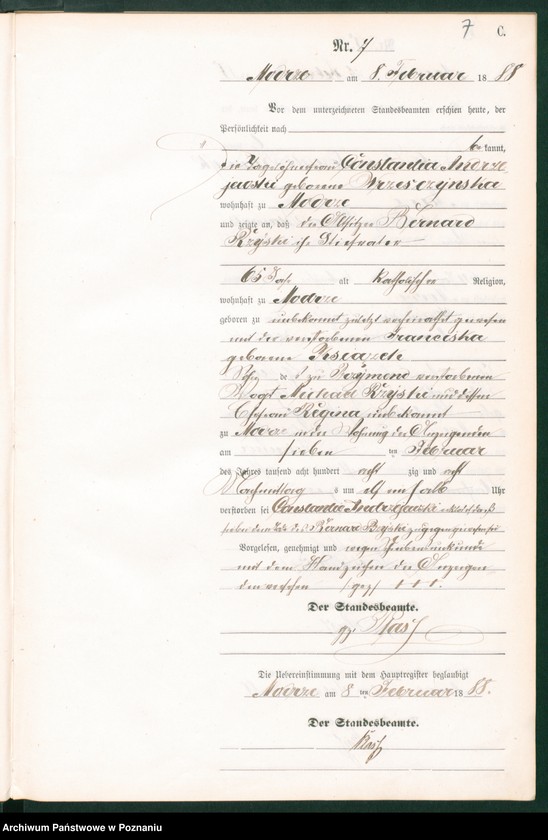 7 C.
Nr. 7
Modrze am 8. Februar 1888
Vor dem unterzeichneten Standesbeamten erschien heute, der
Persönlichkeit nach
be kannt,
die Tagelöhnerfrau Constantia Andrze
jewski geborene
wohnhaft zu Modrze
und zeigte an, daß der Bernard
ihr Stiefvater
65 Jahr alt katholischer Religion,
wohnhaft zu Modrze
geboren zu unbekannt zuletzt verheirathet gewesen
mit der verstorbenen Franciska
geborene
Sohn des zu verstorbenen
Vogt Michael und dessen
Ehefrau Regina unbekannt
zu Modrze in der Wohnung der Anzeigenden
am sieben ten Februar
des Jahres tausend acht hundert acht zig und acht
Nachmittags um elf einhalb Uhr
verstorben sei Constantia
Bernard zugegen gewesen
Vorgelesen, genehmigt und wegen Schreibensunkunde
mit dem Handzeichen der Anzeigen
den versehen (gez) + + +.
Der Standesbeamte.
gz.
Die Uebereinstimmung mit dem Hauptregister beglaubigt
Modrze am 8 ten Februar 1888.
Der Standesbeamte.
Archiwum Państwowe w Poznaniu